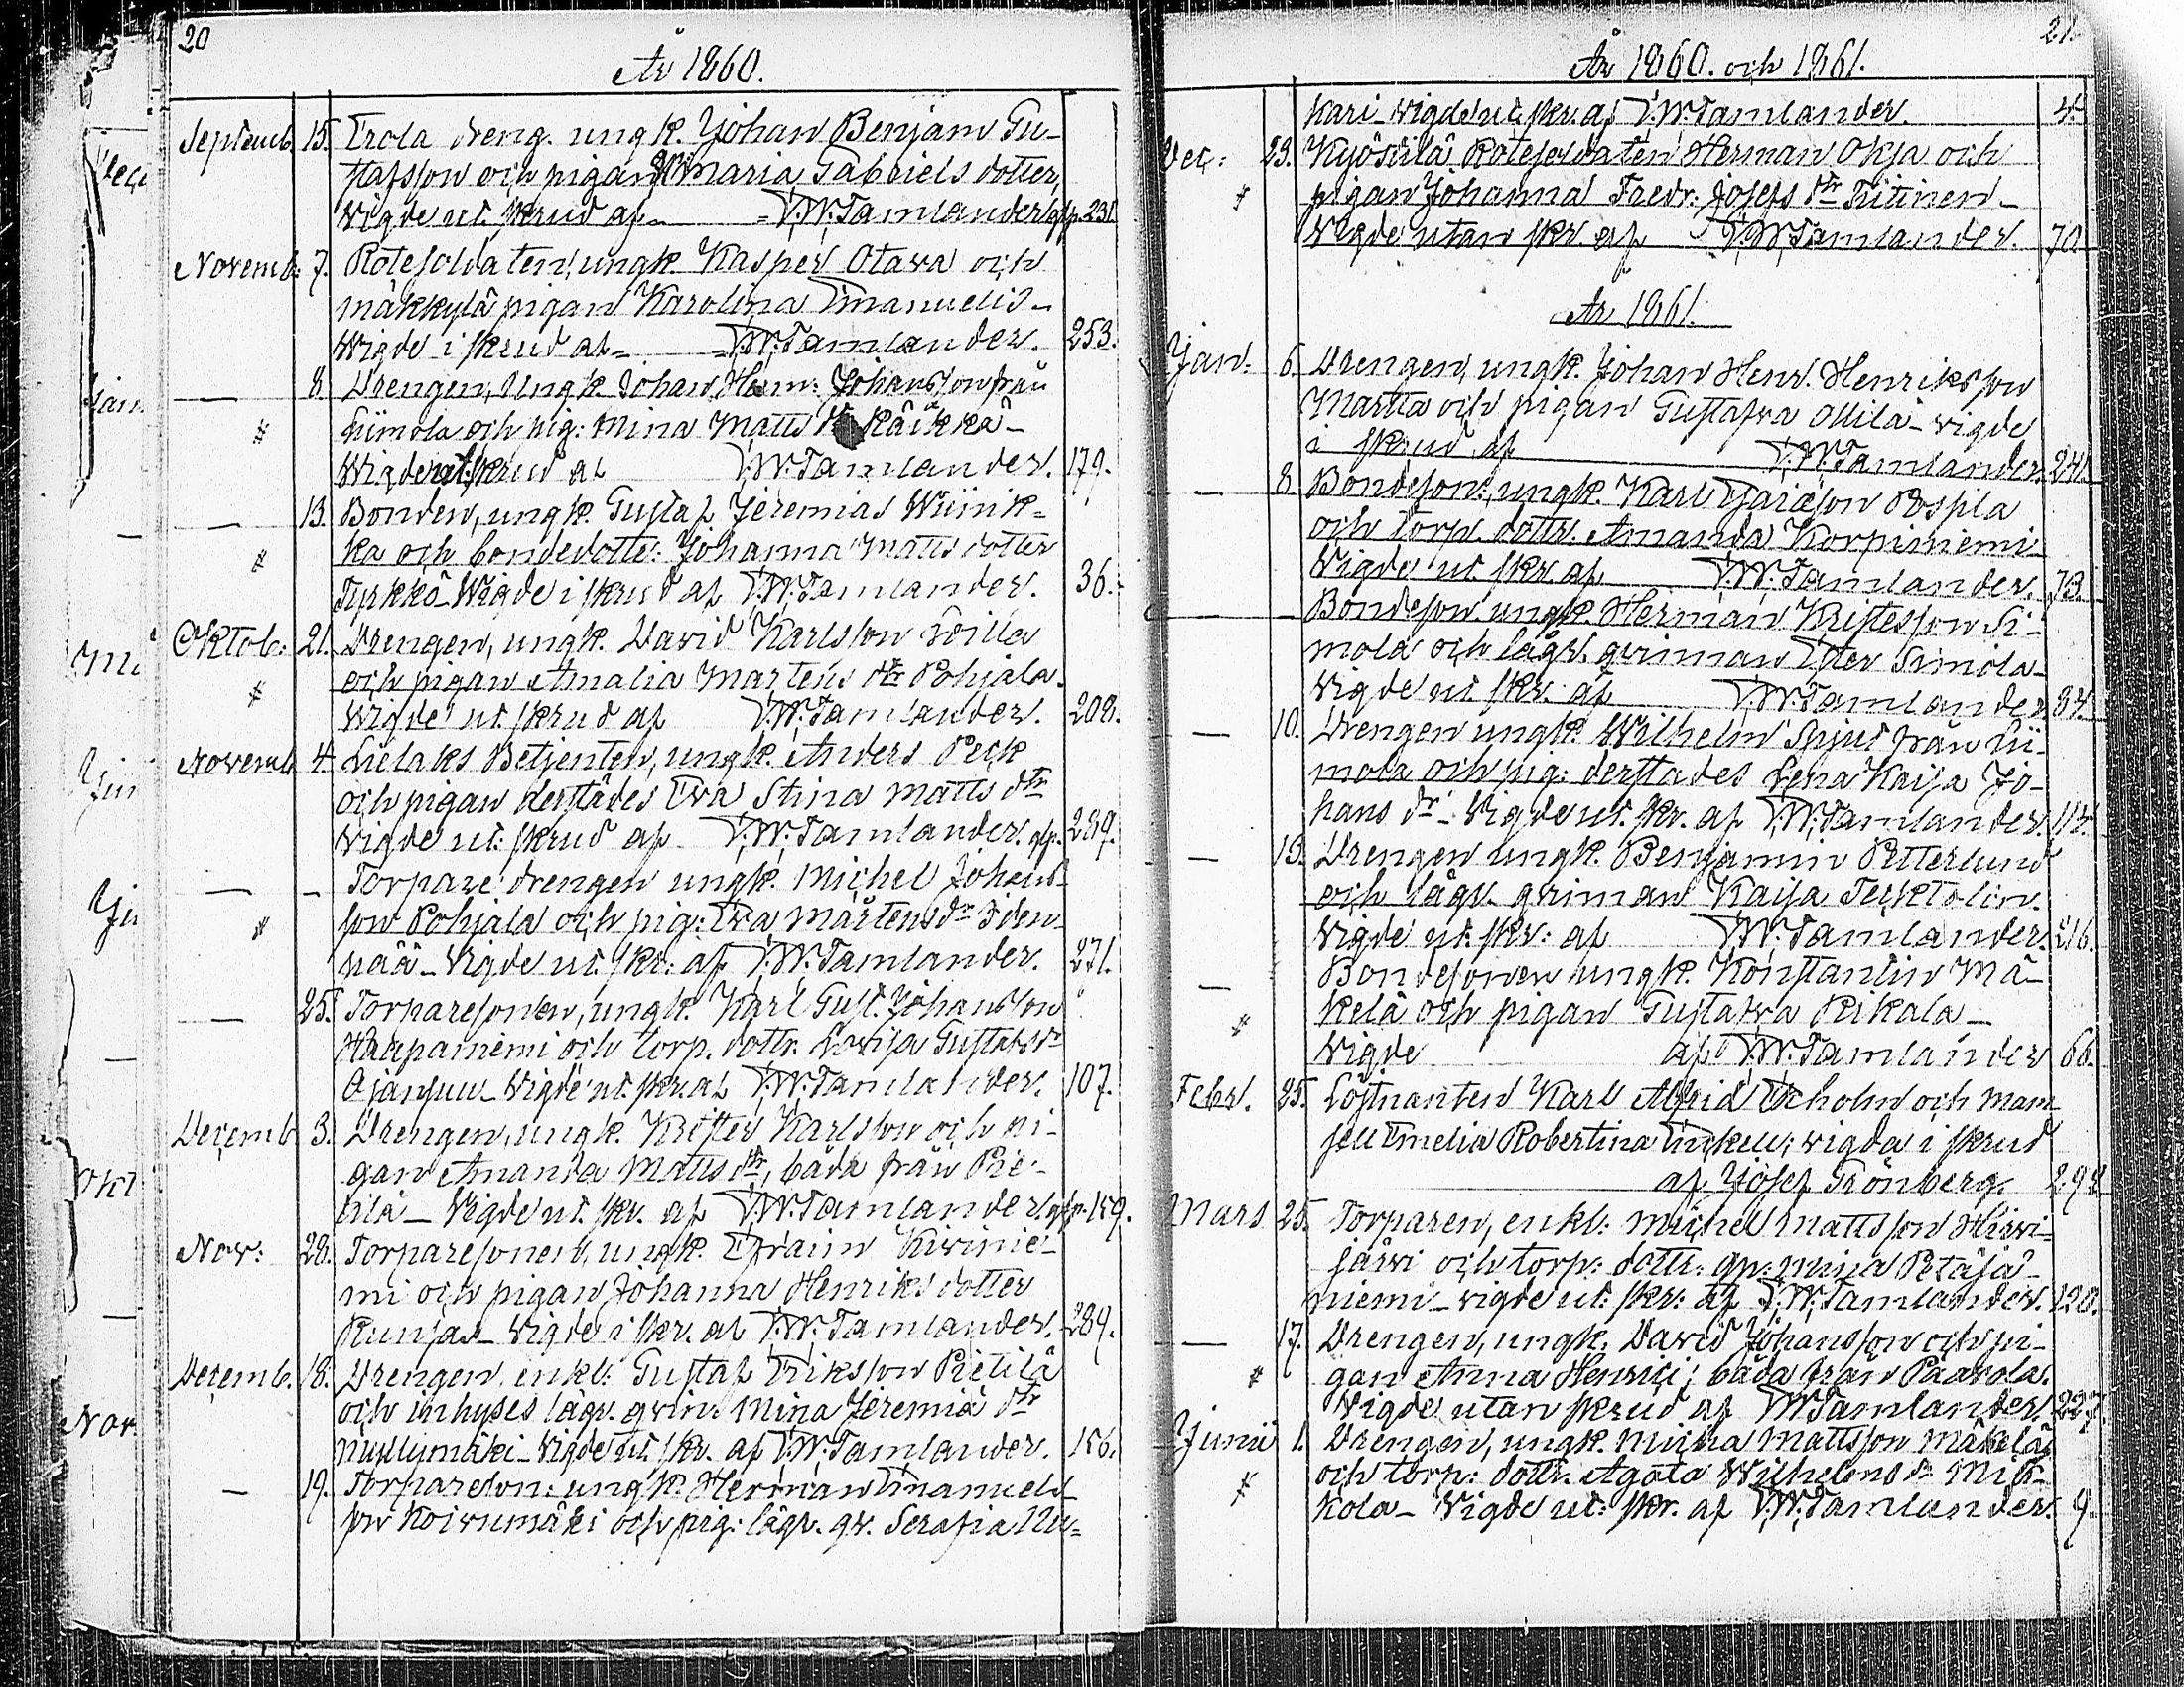 20
År 1860.
Septemb. 15. Erola dreng. ungk. Johan Benjam Gu-
stafsson och pigan Maria Gabriels dotter,
Vigde ut. skrud af T.W. Tamlander 231.
Novemb. 7. Rotesoldaten, ungk. Kasper Otava och
mäkkylä pigan Karolina Emanuelis-
Wigde i skrud af T.W. Tamlander. 253.
— 8. Drengen, Ungk. Johan Herm: Johansson från
Liimola och pig: Mina Matts Räikkä-
Wigde ut. skrud af T.W. Tamlander. 179.
— 13. Bonden, ungk. Gustaf Jeremias Wiinik-
ka och bondedottr: Johanna Matts dotter
Tyrkkö- Wigde i skrud af T.W. Tamlander. 36.
Oktob: 21. Drengen, ungk. David Karlsson
och pigan Amalia Martens dtr Pohjala.
Wigde ut. skrud af T.W. Tamlander. 208.
Novemb 4. Lielaks Betjenten, ungk. Anders Peck
och pigan derstädes Eva Stina Matts dtr
Vigde ut: skrud af T.W. Tamlander. 289.
— – Torpare drengen ungk. Michel Johans-
son Pohjala och pig: Eva Mårtens dr Iden-
pää – Vigde ut. skr: af T.W. Tamlander. 271.
— 25. Torparesonen, ungk. Karl Gust. Johansson
Haapaniemi och torp. dottr. Lovisa Gustafs dr
Ajansuu – Vigde ut. skr. af T.W. Tamlander. 107.
Decemb 3. Drengen, ungk. Krister Karlsson och pi-
gan Amanda Matts dtr, båda från Pie-
tilä – Vigde ut. skr. af T.W. Tamlander 159.
Nov: 28. Torparesonen, ungk. Efraim Kivinie-
mi och pigan Johanna Henriks dotter
Runjas- Vigde i skr. af T.W. Tamlander. 289.
Decemb. 18. Drengen, enkl: Gustaf Eriksson Pietilä
och inhyses lägr. qvin: Mina Jeremiä dtr
Myllymäki- Vigde ut. skr. af T.W. Tamlander. 156.
– 19. Torpareson: ungk. Herman Emanuels
son Koivumäki och pig: lägr. qv. Serafia Nu-
21.
År 1860. och 1861.
kari- vigde ut. skr. af T.W. Tamlander. 4.
Dec: 23. Kyöstilä Rotesoldaten Herman Oksa och
pigan Johanna Fredr: Josefs dtr Tiitinen-
Vigde utan skr. af T.W. Tamlander. 70.
År 1861.
Jan: 6. Drengen, ungk. Johan Henr. Henriksson
Marttа och pigan Gustafva Ollila- vigde
i skrud af T.W. Tamlander 241.
— 8. Bondeson:, ungk. Karl Rospila
och torp. dottr. Amanda Korpiniemi-
Vigde ut. skr. af T.W. Tamlander. 73.
— – Bondeson. ungk. Herman Kristersson Si-
mola och lägr. qvinnan Ester Simola-
Vigde ut skr. af T.W. Tamlander. 84.
— 10. Drengen ungk. Wilhelm Spjut från Lii-
mola och pig: derstades Lena Kaisa Jo-
hans dr – Vigde ut. skr. af T.W. Tamlander. 114.
— 13. Drengen ungk. Benjamin Petterlund
och lägr. qvinnan Kaisa
Vigde ut. skr: af T.W. Tamlander. 216.
— Bondesonen ungk. Konstantin Mä-
kelä och pigan Gustafva Rikala –
Vigde af T.W. Tamlander 66.
Febr. 25. Löjtnanten Karl Alfrid Ekholm och mam-
sell Emelia Robertina Enckell; vigda i skrud
af Josef Grönberg. 292
Mars 25. Torparen, enkl: Michel Mattsson Hirvi-
järvi och torp: dottr: Mina Petäjä-
niemi – vigde ut: skr: af T.W. Tamlander. 120.
— 17. Drengen, ungk. David Johansson och pi-
gan Anna Henrici; båda från Paavola.
Vigde utan skrud af T.W. Tamlander. 227.
Junii 1. Drengen, ungk. Mattsson Mäkelä
och torp: dottr. Agata Wilhelms dr Mik-
kola – Vigde ut: skr. af T.W. Tamlander. 9.